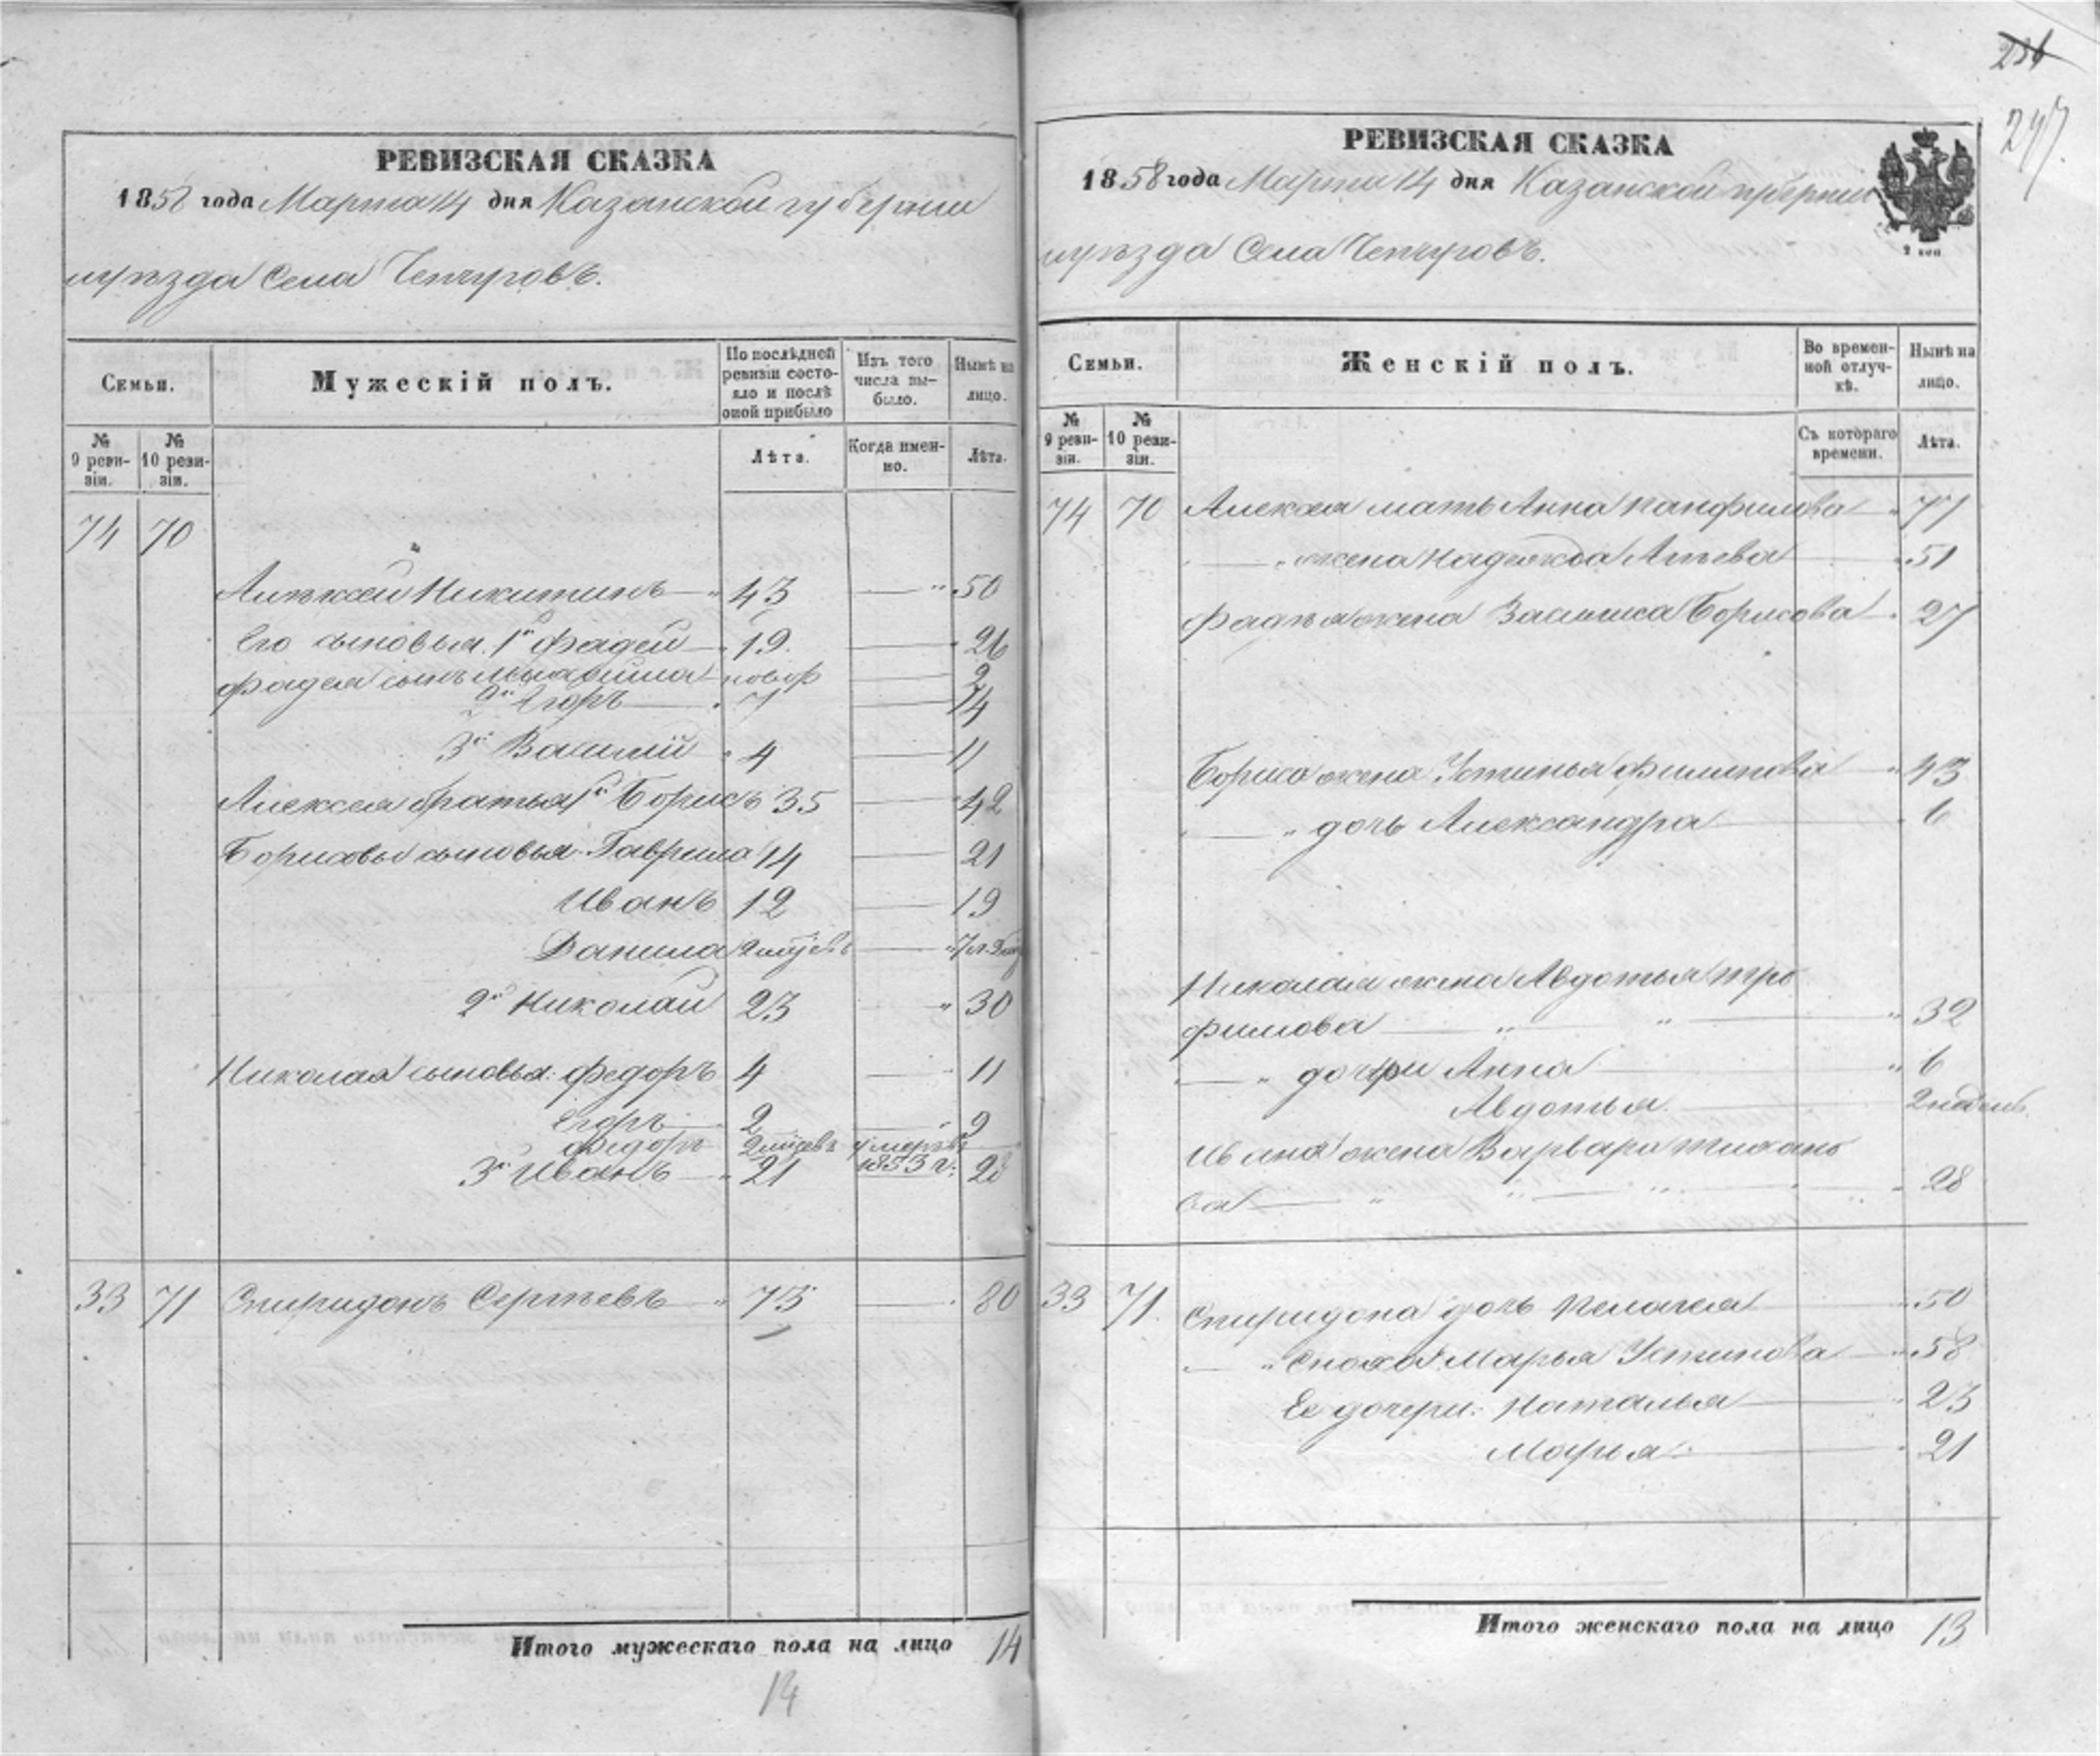 РЕВИЗСКАЯ СКАЗКА
1858 года Марта 14 дня Казанской губернии
и уѣзда Села Чепчуговъ.
Семьи.
Мужескій полъ.
По послѣдней ревизіи состояло и послѣ оной прибыло
Изъ того числа выбыло.
Нынѣ на лицо.
№ 9 ревизіи.
№ 10 ревизіи.
Лѣта.
Когда именно.
Лѣта.
74 70
Алексей Никитинъ 43 50
Его сыновья. 1й Фадей 19. 26
Фадея сынъ новор 2
2й Егоръ 7 14
3й Василій 4 11
Алексея братья 1й Борисъ 35 42
Борисовы сыновья Гаврила 14 21
Иванъ 12 19
Данила
2й Николай 23 30
Николая сыновья: Федоръ 4 11
Егоръ 2 9
Федоръ умеръ въ 1853 г.
3й Иванъ 21 28
33 71 Спиридонъ Сергѣевъ 73 80
Итого мужескаго пола на лицо 14
14
РЕВИЗСКАЯ СКАЗКА
1858 года Марта 14 дня Казанской губерніи
и уѣзда Села Чепчуговъ.
2 коп
247.
Семьи.
Женскій полъ.
Во временной отлучкѣ.
Нынѣ на лицо.
№ 9 ревизіи.
№ 10 ревизіи.
Съ котораго времени.
Лѣта.
74 70 Алексея мать Анна Панфилова 77
жена Надежда 51
Фадѣя жена Василиса Борисова 27
Бориса жена Устинья Филипова 43
дочь Александра 6
Николая жена Авдотья Тро
фимова 32
дочери Анна 6
Авдотья 2 недель.
Ивана жена Варвара Тихано
ва 28
33 71. Спиридона дочь Пелагея 50
Сноха Марья Устинова 58
Ее дочери: Наталья 23
Марья 21
Итого женскаго пола на лицо 13